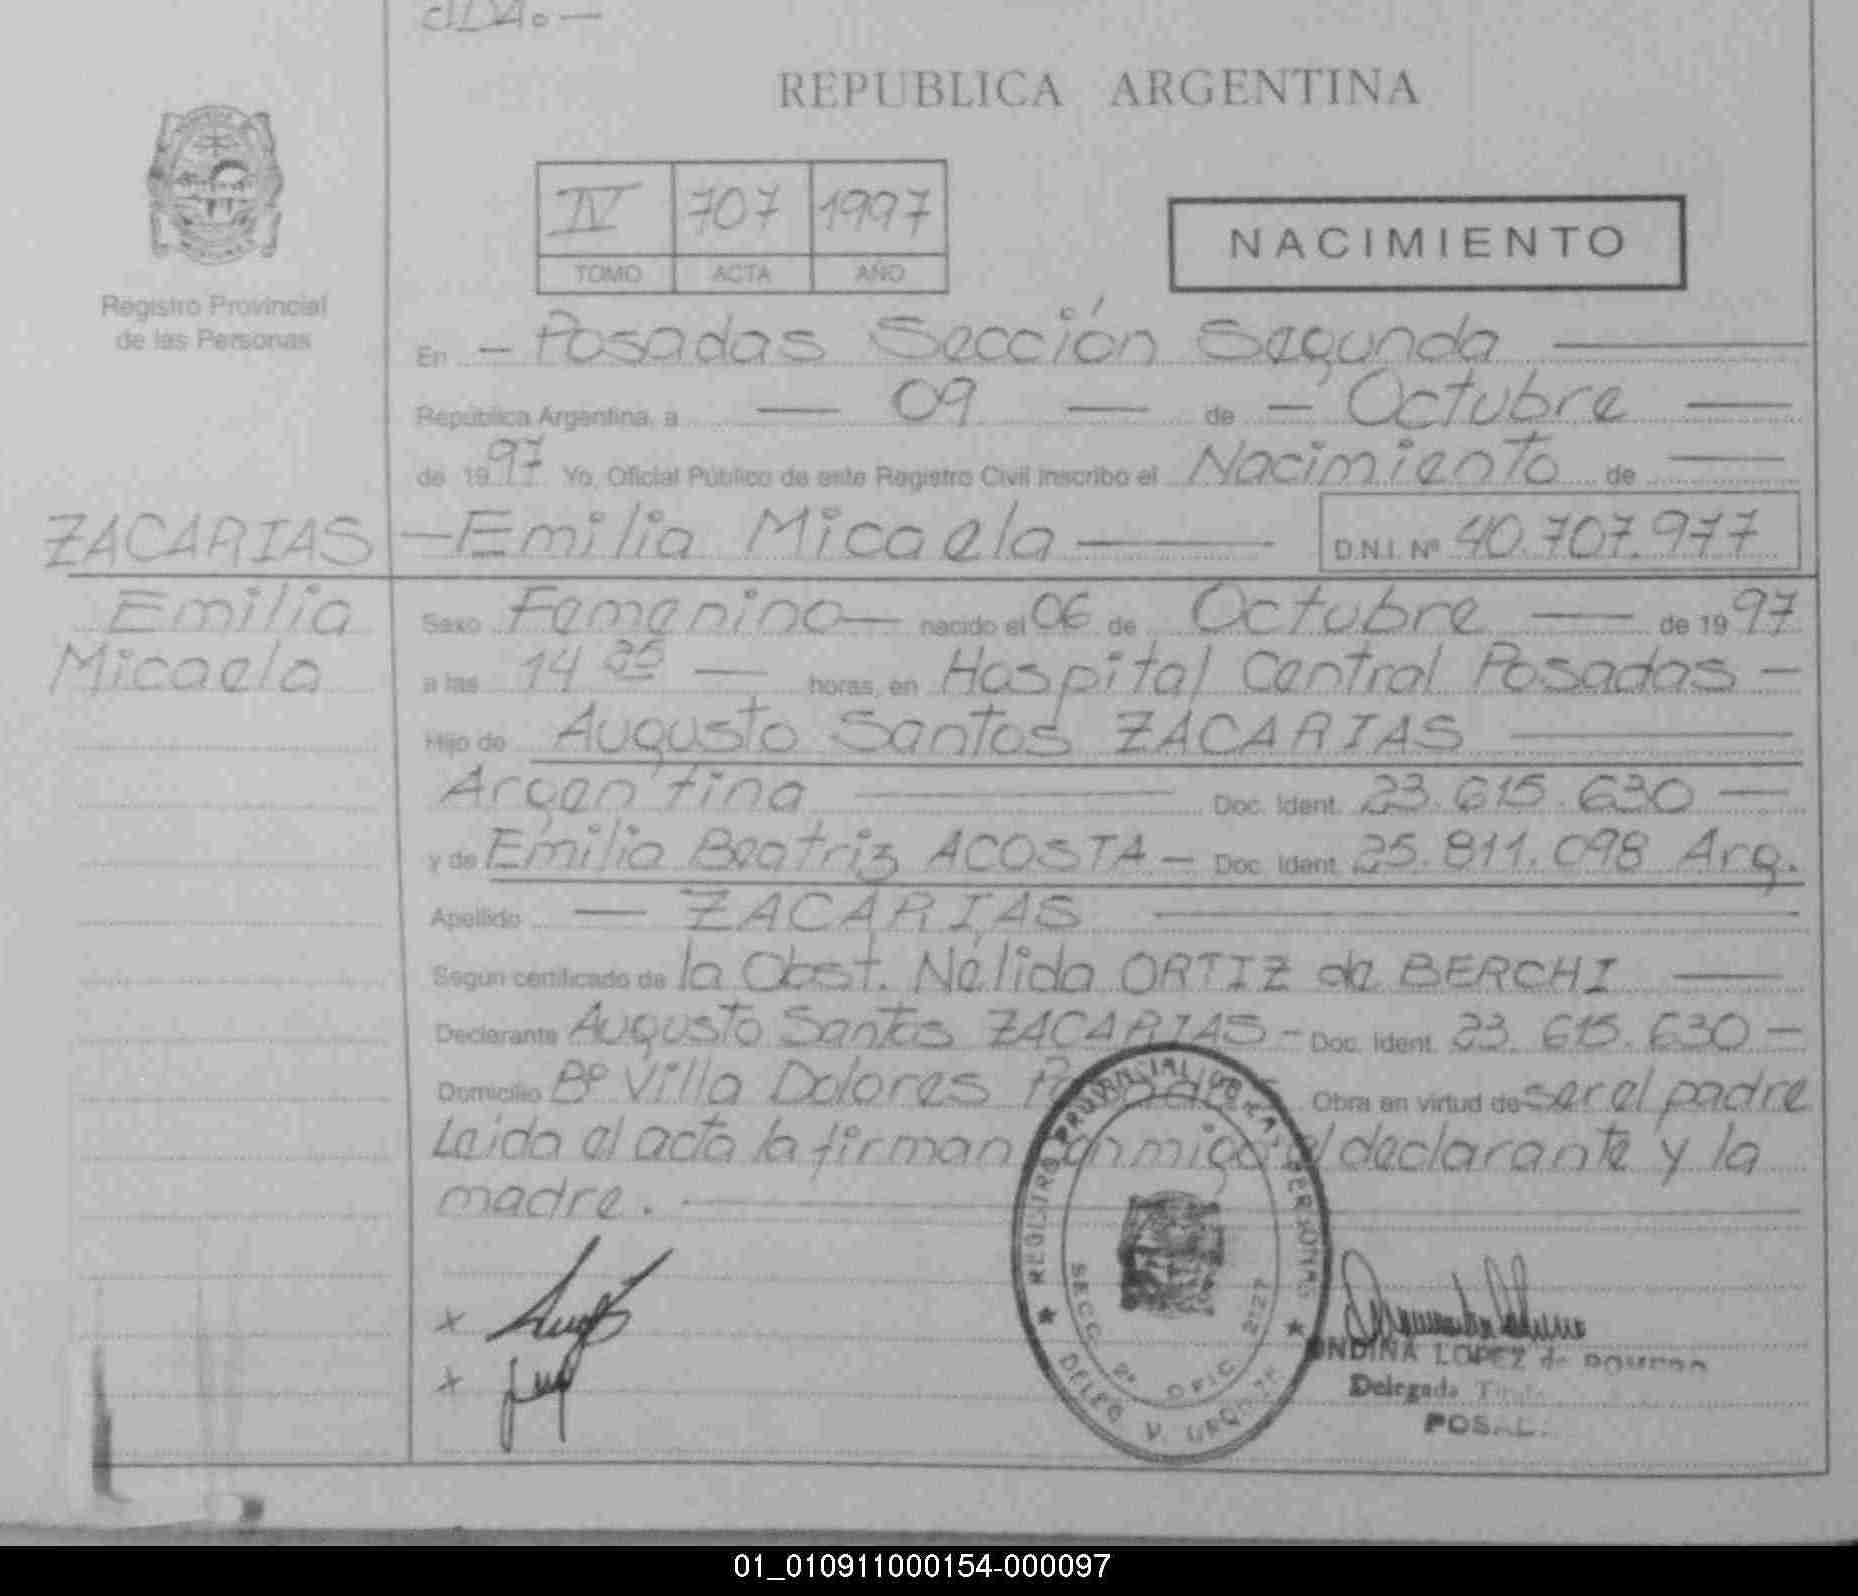 REPUBLICA ARGENTINA
IV 707 1997
TOMO ACTA AÑO
NACIMIENTO
Registro Provincial
de las Personas
En — Posadas Sección Segunda —
República Argentina, a — 09 — de — Octubre —
de 1997 Yo, Oficial Público de este Registro Civil inscribo el Nacimiento de —
ZACARIAS — Emilia Micaela — D.N.I. Nº 40.707.977
Emilia
Micaela
Sexo Femenino — nacido el 06 de Octubre — de 1997
a las 14 — horas, en Hospital Central Posadas —
Hijo de Augusto Santos ZACARIAS —
Argentina — Doc. Ident. 23.615.630 —
y de Emilia Beatriz ACOSTA — Doc. Ident. 25.811.098 Arg.
Apellido — ZACARIAS —
Según certificado de la Obst. Nélida ORTIZ de BERCHI —
Declarante Augusto Santos ZACARIAS — Doc. Ident. 23.615.630 —
Domicilio Bº Villa Dolores Posadas Obra en virtud de ser el padre
Leida el acta la firman conmigo el declarante y la
madre. —
x
x
REGISTRO PROVINCIAL DE LAS PERSONAS
SECC. 2ª OFIC. 2127
DELEG. V. URQUIZA
ONDINA LOPEZ de
Delegada
01_010911000154-000097